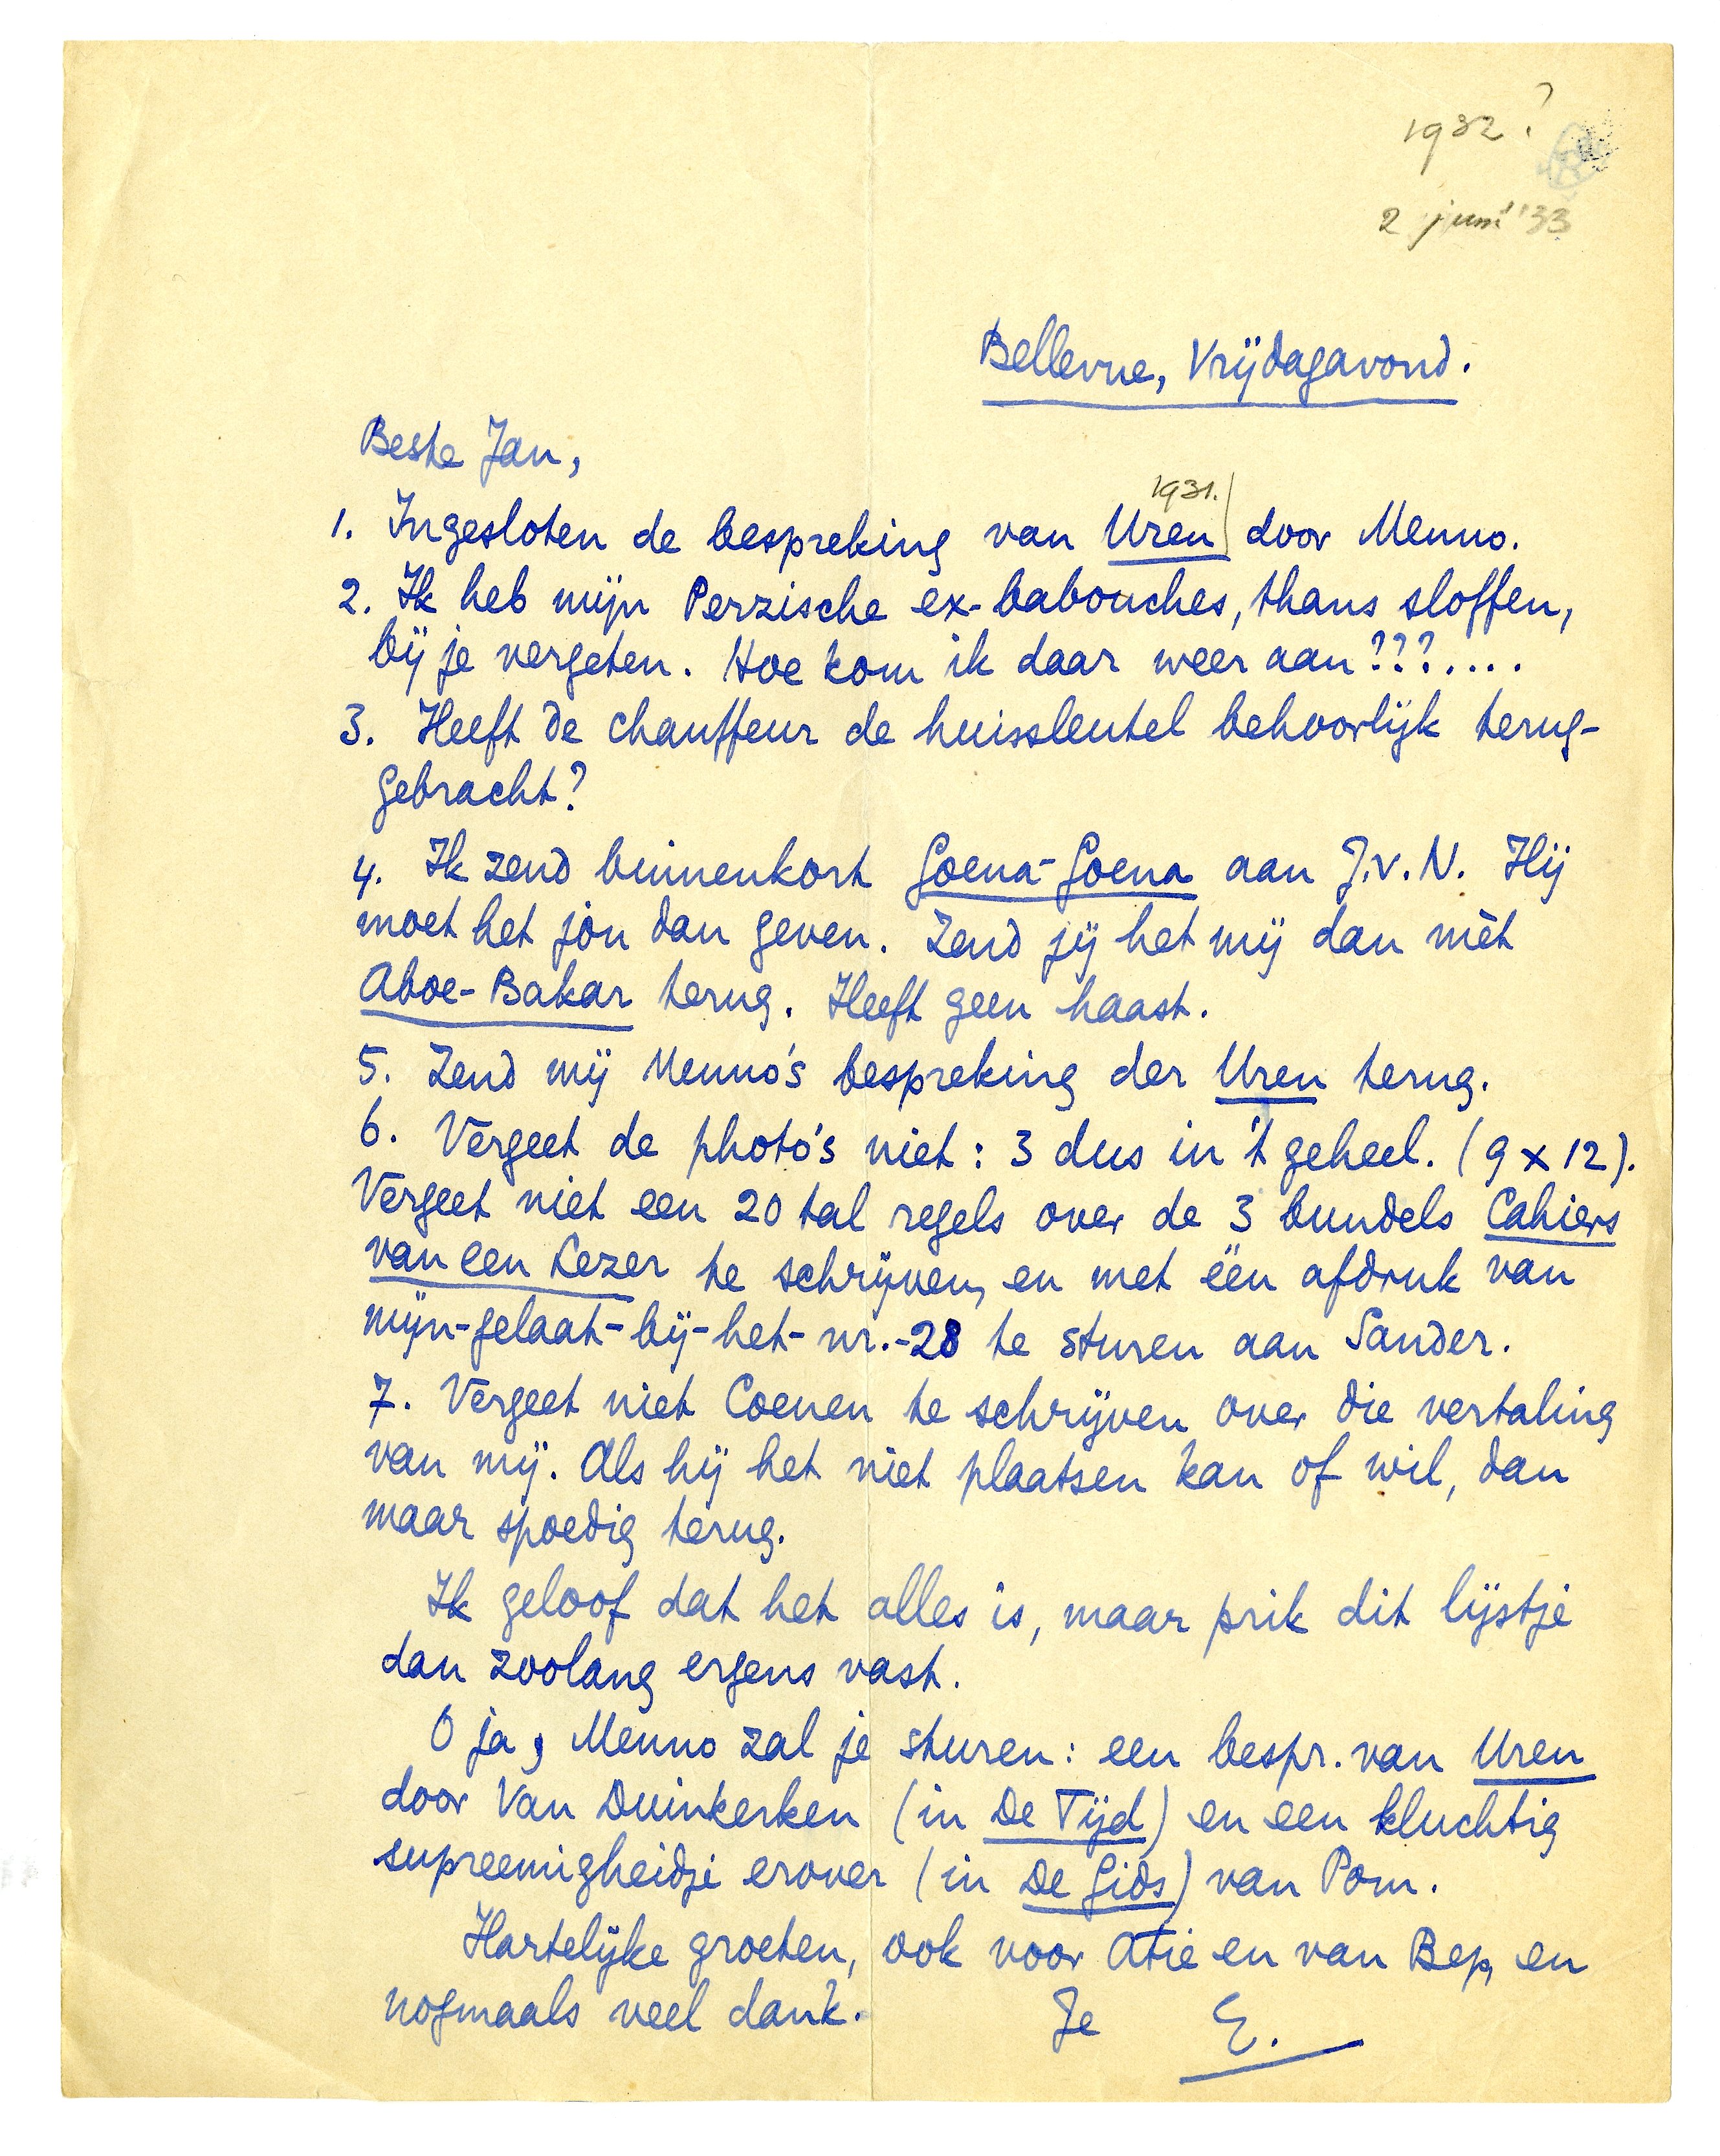 1932?
2 juni '33
Bellevue, Vrijdagavond.
Beste Jan,
1931.
1. Ingesloten de bespreking van Uren door Menno.
2. Ik heb mijn Perzische ex-babouches, thans sloffen,
bij je vergeten. Hoe kom ik daar weer aan???....
3. Heeft de chauffeur de huissleutel behoorlijk terug-
gebracht?
4. Ik zend binnenkort Goena-Goena aan J.v.N. Hij
moet het jòu dan geven. Zend jij het mij dan mèt
Aboe-Bakar terug. Heeft geen haast.
5. Zend mij Menno's bespreking der Uren terug.
6. Vergeet de photo's niet: 3 dus in 't geheel. (9 x 12).
Vergeet niet een 20 tal regels over de 3 bundels Cahiers
van een Lezer te schrijven, en met één afdruk van
mijn-gelaat-bij-het-nr.-28 te sturen aan Sander.
7. Vergeet niet Coenen te schrijven over die vertaling
van mij. Als hij het niet plaatsen kan of wil, dan
maar spoedig terug.
Ik geloof dat het alles is, maar prik dit lijstje
dan zoolang ergens vast.
O ja, Menno zal je sturen: een bespr. van Uren
door Van Duinkerken (in De Tijd) en een kluchtig
supreemigheidje erover (in De Gids) van Pom.
Hartelijke groeten, ook voor Atie en van Bep, en
nogmaals veel dank. Je E.